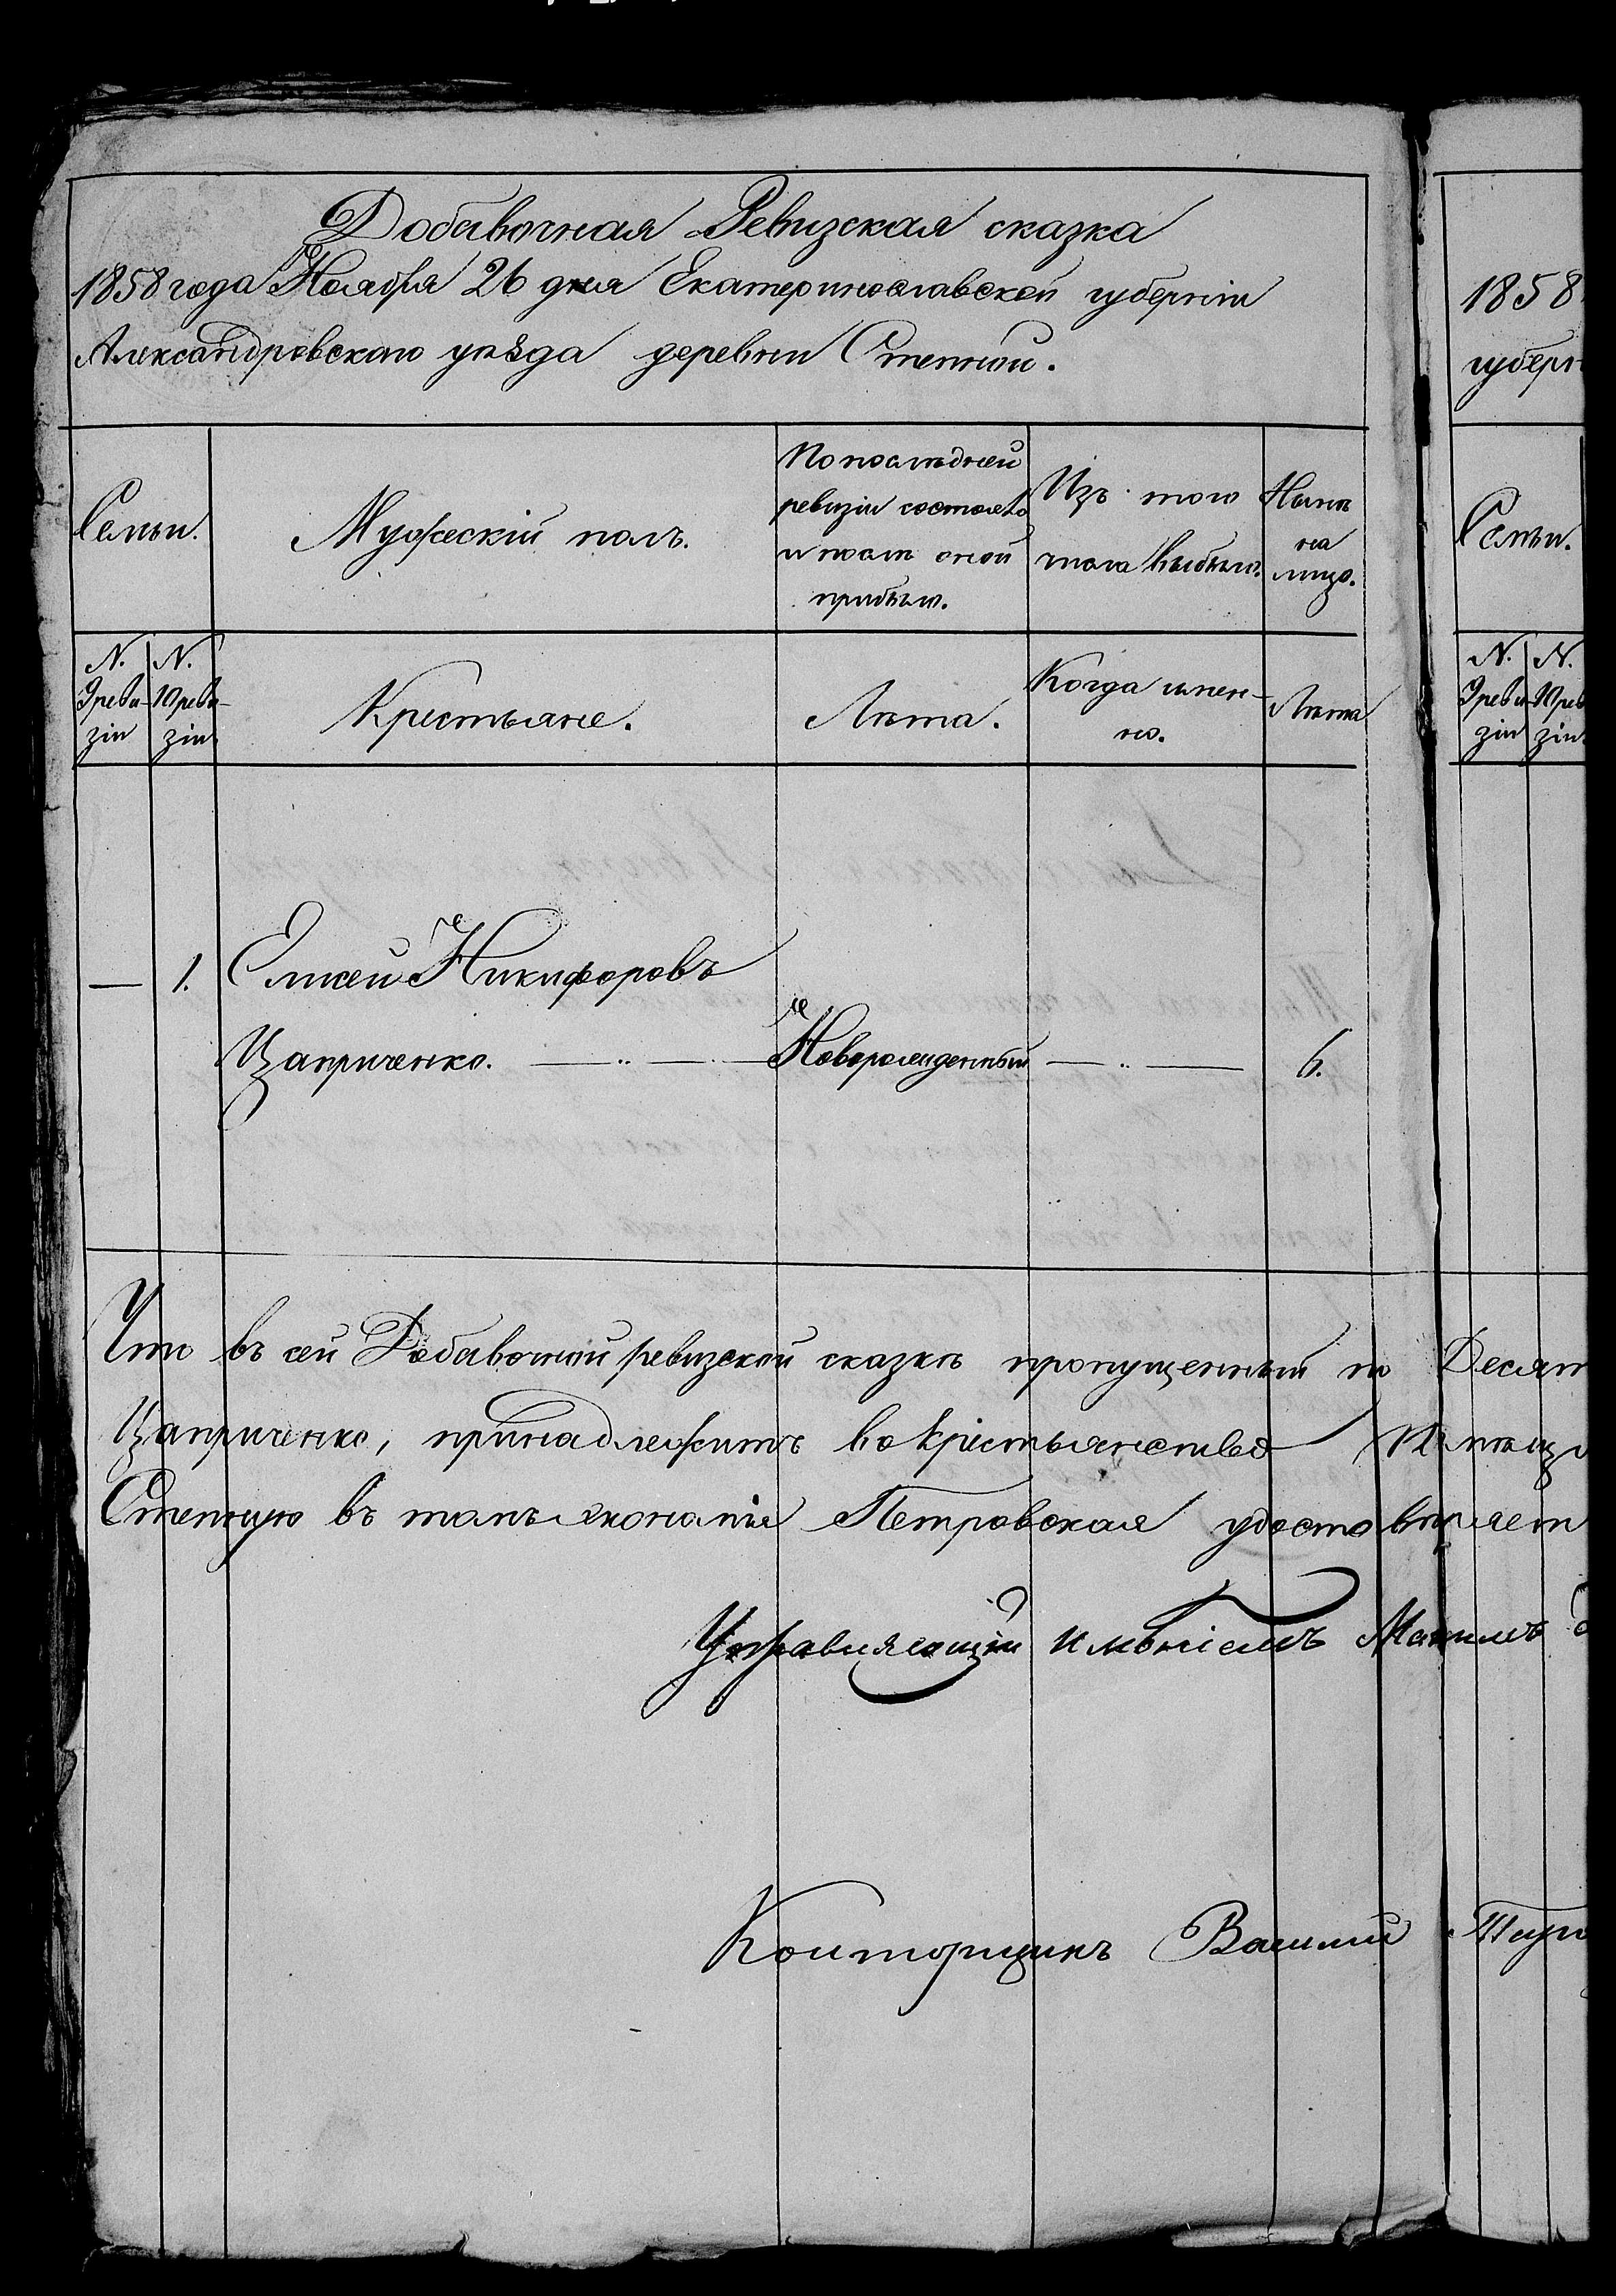 Добавочная Ревизская сказка
1858 года Ноября 26 дня Екатеринославской губерніи
Александровскаго уѣзда деревни Степной.
Семьи.
Мужескій полъ.
По послѣдней
ревизіи состояло
и послѣ оной
прибыло.
Изъ того
числа выбыло.
Нынѣ
на
лицо.
N.
9 реви-
зіи
N.
10 реви-
зіи
Крестьяне.
Лѣта.
Когда имен-
но.
Лѣта
— 1. Елисей Никифоровъ
Цаприченко. Новорожденный 6.
Что въ сей Добавочной ревизской сказкѣ пропущенный по Десят
Цаприченко, принадлежитъ въ крестьянство
Степную въ томъ экономія Петровская удостовѣряет
Управляющій имѣніемъ
Конторщикъ Василий
1858
губерн
Семьи.
N.
9 реви-
зіи
N.
10 рев
зіи.